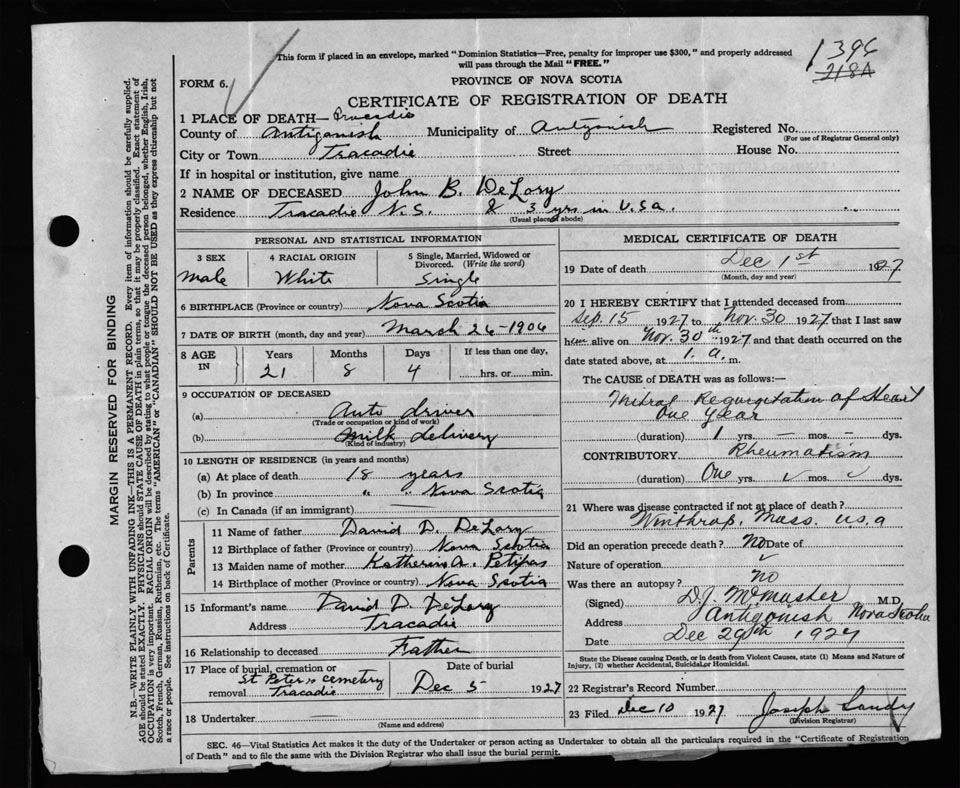 This form if placed in an envelope, marked "Dominion Statistics—Free, penalty for improper use $300," and properly addressed
will pass through the Mail "FREE."
1396
218A
FORM 6.
PROVINCE OF NOVA SCOTIA
CERTIFICATE OF REGISTRATION OF DEATH
1 PLACE OF DEATH— Tracadie
County of Antigonish Municipality of Antigonish Registered No.
(For use of Registrar General only)
City or Town Tracadie Street House No.
If in hospital or institution, give name
2 NAME OF DECEASED John B. DeLory
Residence Tracadie N.S. & 3 yrs in U.S.a.
(Usual place of abode)
PERSONAL AND STATISTICAL INFORMATION
3 SEX 4 RACIAL ORIGIN 5 Single, Married, Widowed or Divorced. (Write the word)
Male White Single
6 BIRTHPLACE (Province or country) Nova Scotia
7 DATE OF BIRTH (month, day and year) March 26-1906
8 AGE IN Years Months Days If less than one day,
21 8 4 hrs. or min.
9 OCCUPATION OF DECEASED
(a) Auto driver
(Trade or occupation or kind of work)
(b) Milk delivery
(Kind of industry)
10 LENGTH OF RESIDENCE (in years and months)
(a) At place of death 18 years
(b) In province " " Nova Scotia
(c) In Canada (if an immigrant)
Parents
11 Name of father David D. DeLory
12 Birthplace of father (Province or country) Nova Scotia
13 Maiden name of mother Katherine A. Petipas
14 Birthplace of mother (Province or country) Nova Scotia
15 Informant's name David D. DeLory
Address Tracadie
16 Relationship to deceased Father
17 Place of burial, cremation or removal St Peter's Cemetery Tracadie
Date of burial
Dec 5 1927
18 Undertaker
(Name and address)
MEDICAL CERTIFICATE OF DEATH
19 Date of death Dec 1st 1927
(Month, day and year)
20 I HEREBY CERTIFY that I attended deceased from
Sep. 15 1927 to Nov. 30 1927 that I last saw
him alive on Nov. 30th 1927 and that death occurred on the
date stated above, at 1. a. m.
The CAUSE OF DEATH was as follows:—
Mitral Regurgitation of Heart
One Year
(duration) 1 yrs. — mos. — dys.
CONTRIBUTORY Rheumatism
(duration) One yrs. mos. dys.
21 Where was disease contracted if not at place of death?
Winthrop, Mass. U.S.a
Did an operation precede death? No Date of
Nature of operation
Was there an autopsy? no
(Signed) D.J. McMaster M.D.
Address Antigonish Nova Scotia
Date Dec 29th 1927
State the Disease causing Death, or in death from Violent Causes, state (1) Means and Nature of
Injury, (2) whether Accidental, Suicidal, or Homicidal.
22 Registrar's Record Number
23 Filed Dec 10 1927 Joseph Landy
(Division Registrar)
SEC. 46—Vital Statistics Act makes it the duty of the Undertaker or person acting as Undertaker to obtain all the particulars required in the "Certificate of Registration
of Death" and to file the same with the Division Registrar who shall issue the burial permit.
MARGIN RESERVED FOR BINDING
N.B.—WRITE PLAINLY WITH UNFADING INK—THIS IS A PERMANENT RECORD. Every item of information should be carefully supplied.
AGE should be stated EXACTLY. PHYSICIANS should STATE CAUSE OF DEATH in plain terms, so that it may be properly classified. Exact statement of
OCCUPATION is very important. RACIAL ORIGIN will be described by stating to what people or tongue the deceased person belonged, whether English, Irish,
Scotch, French, German, Russian, Ruthenian, etc. The terms "AMERICAN" or "CANADIAN" SHOULD NOT BE USED as they express citizenship but not
a race or people. See instructions on back of Certificate.